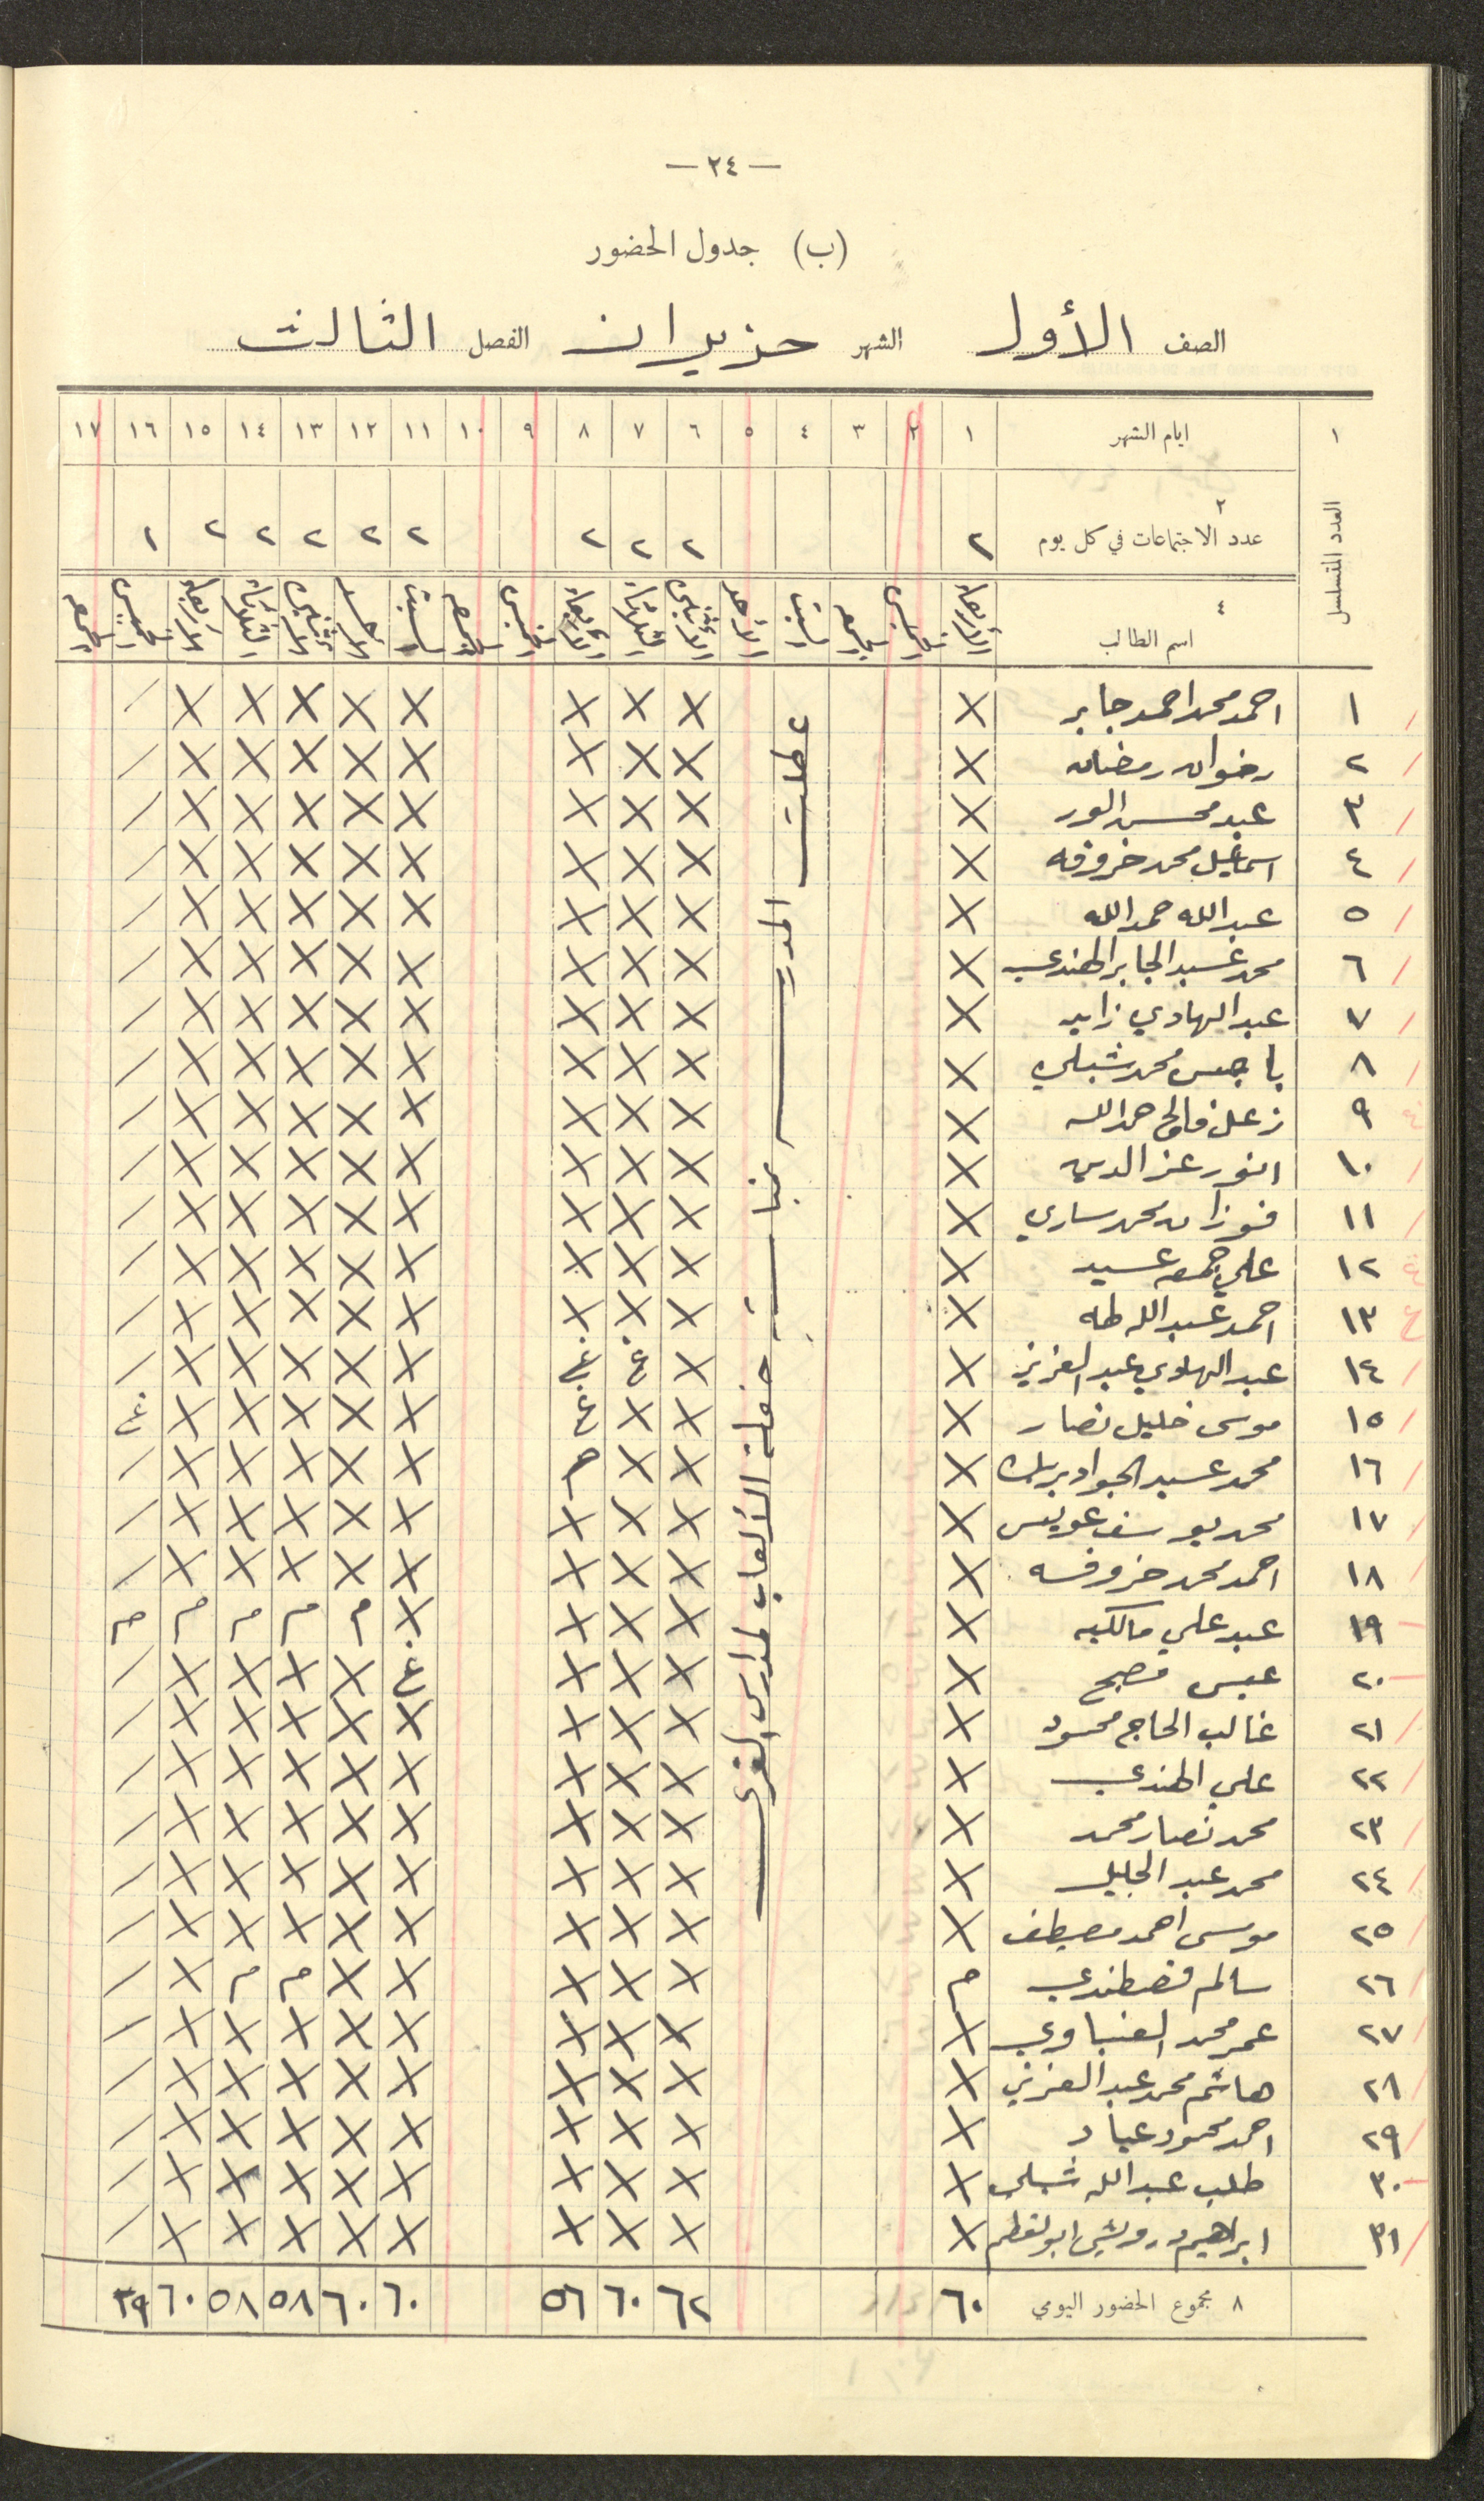 — ٢٤ —
(ب) جدول الحضور
الصف الأول الشهر حزيران الفصل الثالث
١ ايام الشهر ١ ٢ ٣ ٤ ٥ ٦ ٧ ٨ ٩ ١٠ ١١ ١٢ ١٣ ١٤ ١٥ ١٦ ١٧
العدد المتسلسل
٢
عدد الاجتماعات في كل يوم ٢ ٢ ٢ ٢ ٢ ٢ ٢ ٢ ٢ ١
٤
اسم الطالب الأربعاء الخميس الجمعه السبت الأحد الأثنين الثلاثاء الأربعاء الخميس الجمعه السبت الأحد الأثنين الثلاثاء الأربعاء الخميس الجمعه
عطلت المدرسه بمناسبة حفلة الألعاب لمدارس القرى
١ احمد محمد احمد جابر X X X X X X X X X /
٢ رضوان رمضان X X X X X X X X X /
٣ عبد محسن الور X X X X X X X X X /
٤ اسماعيل محمد خروفه X X X X X X X X X /
٥ عبدالله حمدالله X X X X X X X X X /
٦ محمد عبد الجابر الهندي X X X X X X X X X /
٧ عبد الهادي زايد X X X X X X X X X /
٨ باجس محمد شبلي X X X X X X X X X /
٩ زعل فالح حمدالله X X X X X X X X X /
١٠ انور عز الدين X X X X X X X X X /
١١ فوزان محمد ساري X X X X X X X X X /
١٢ علي جمعه عبيد X X X X X X X X X /
١٣ احمد عبد الله طه X X X X X X X X X /
١٤ عبد الهادي عبد العزيز X X غ غ X X X X X /
١٥ موسى خليل نصار X X X غ X X X X X غ
١٦ محمد عبد الجواد بريك X X X م X X X X X /
١٧ محمد يوسف عويس X X X X X X X X X /
١٨ احمد محمد خروفه X X X X X X X X X /
١٩ عبد علي مالكيه X X X X X م م م م م
٢٠ عيسى مصبح X X X X غ X X X X /
٢١ غالب الحاج محمود X X X X X X X X X /
٢٢ علي الهندي X X X X X X X X X /
٢٣ محمد نصار محمد X X X X X X X X X /
٢٤ محمد عبد الجليل X X X X X X X X X /
٢٥ موسى احمد مصطفى X X X X X X X X X /
٢٦ سالم قصطندي م X X X X X م م X /
٢٧ عمر محمد العنباوي X X X X X X X X X /
٢٨ هاشم محمد عبد العزيز X X X X X X X X X /
٢٩ احمد محمود عياد X X X X X X X X X /
٣٠ طلب عبد الله شبلي X X X X X X X X X /
٣١ ابراهيم درويش ابو لفطم X X X X X X X X X /
٨ مجموع الحضور اليومي ٦٠ ٦٢ ٦٠ ٥٦ ٦٠ ٦٠ ٥٨ ٥٨ ٦٠ ٢٩